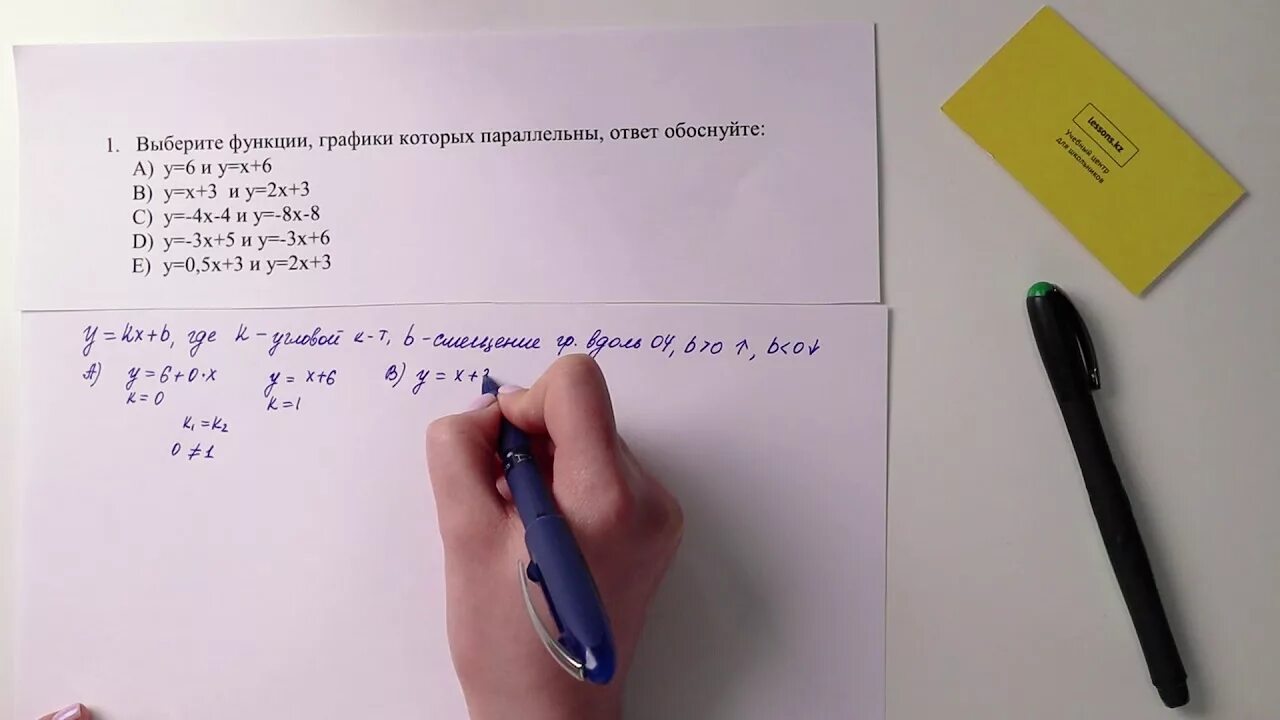 1. Выберите функции, графики которых параллельны, ответ обоснуйте:
A) y=6 и y=x+6
B) y=x+3 и y=2x+3
C) y=-4x-4 и y=-8x-8
D) y=-3x+5 и y=-3x+6
E) y=0,5x+3 и y=2x+3
y = kx+b, где k - угловой к-т, b - смещение гр. вдоль OY, b>0 ↑, b<0↓
A) y = 6+0·x y = x+6 B) y = x+3
k=0 k=1
k₁=k₂
0 ≠ 1
lessons.kz
Учебный центр
для школьников